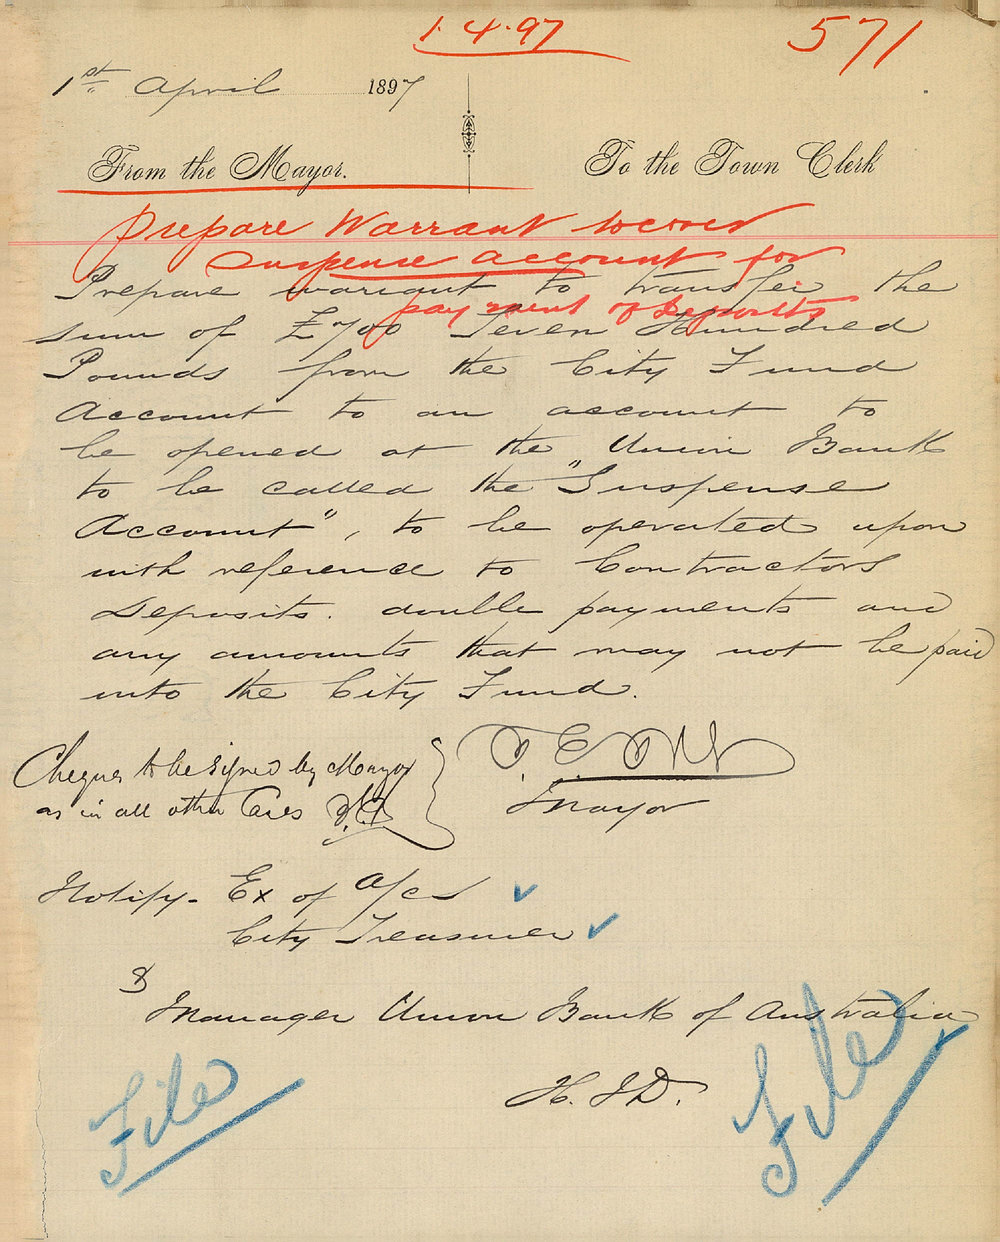 1.4.97
571
1st April 1897
From the Mayor.
To the Town Clerk
Prepare Warrant
Suspense Account for
payment of Deposits
Prepare warrant to transfer the
sum of £700 Seven Hundred
Pounds from the City Fund
Account to an account to
be opened at the Union Bank
to be called the "Suspense
Account", to be operated upon
with reference to Contractors
Deposits. double payments and
any amounts that may not be paid
into the City Fund.
Cheques to be signed by Mayor
as in all other Cases
Mayor
Notify - Ex of A/cs
City Treasurer
&
Manager Union Bank of Australia
H. J. D.
File
File